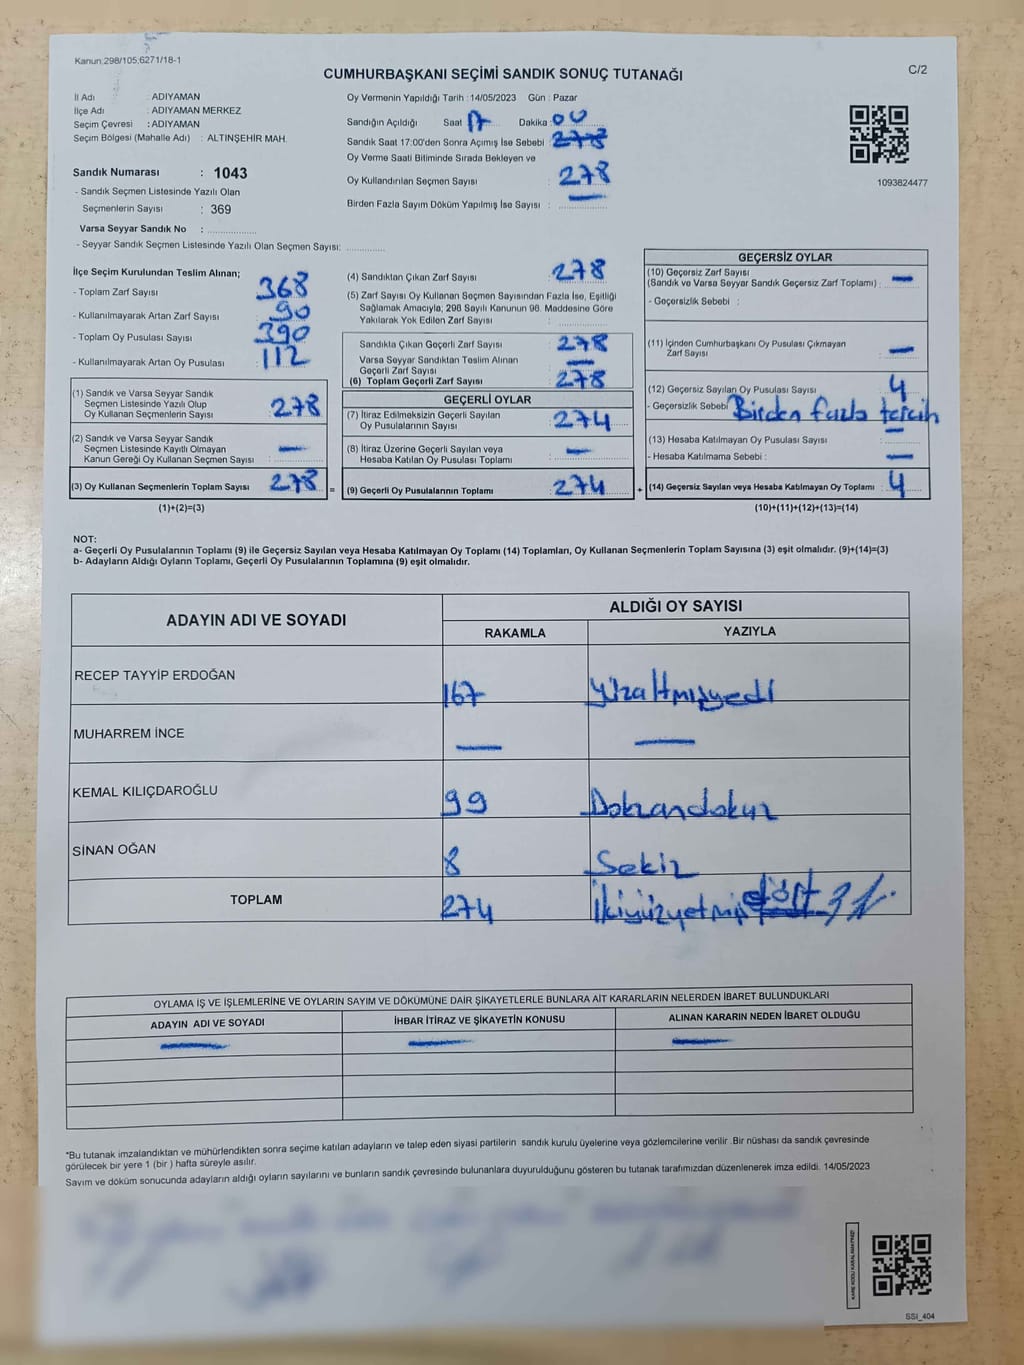 Kanun:298/105;6271/18-1
C/2
CUMHURBAŞKANI SEÇİMİ SANDIK SONUÇ TUTANAĞI
İl Adı : ADIYAMAN
İlçe Adı : ADIYAMAN MERKEZ
Seçim Çevresi : ADIYAMAN
Seçim Bölgesi (Mahalle Adı) : ALTINŞEHİR MAH.
Oy Vermenin Yapıldığı Tarih :14/05/2023 Gün : Pazar
Sandığın Açıldığı Saat 17 Dakika : 00
Sandık Saat 17:00'den Sonra Açımış İse Sebebi : 278
Oy Verme Saati Bitiminde Sırada Bekleyen ve
Oy Kullandırılan Seçmen Sayısı : 278
Birden Fazla Sayım Döküm Yapılmış İse Sayısı : —
1093824477
Sandık Numarası : 1043
- Sandık Seçmen Listesinde Yazılı Olan
Seçmenlerin Sayısı : 369
Varsa Seyyar Sandık No :
- Seyyar Sandık Seçmen Listesinde Yazılı Olan Seçmen Sayısı:
İlçe Seçim Kurulundan Teslim Alınan;
- Toplam Zarf Sayısı 368
- Kullanılmayarak Artan Zarf Sayısı 90
- Toplam Oy Pusulası Sayısı 390
- Kullanılmayarak Artan Oy Pusulası 112
(1) Sandık ve Varsa Seyyar Sandık
Seçmen Listesinde Yazılı Olup
Oy Kullanan Seçmenlerin Sayısı : 278
(2) Sandık ve Varsa Seyyar Sandık
Seçmen Listesinde Kayıtlı Olmayan
Kanun Gereği Oy Kullanan Seçmen Sayısı : —
(3) Oy Kullanan Seçmenlerin Toplam Sayısı 278 =
(1)+(2)=(3)
(4) Sandıktan Çıkan Zarf Sayısı : 278
(5) Zarf Sayısı Oy Kullanan Seçmen Sayısından Fazla İse, Eşitliği
Sağlamak Amacıyla, 298 Sayılı Kanunun 98. Maddesine Göre
Yakılarak Yok Edilen Zarf Sayısı :
Sandıkla Çıkan Geçerli Zarf Sayısı : 278
Varsa Seyyar Sandıktan Teslim Alınan
Geçerli Zarf Sayısı : —
(6) Toplam Geçerli Zarf Sayısı 278
GEÇERLİ OYLAR
(7) İtiraz Edilmeksizin Geçerli Sayılan
Oy Pusulalarının Sayısı : 274
(8) İtiraz Üzerine Geçerli Sayılan veya
Hesaba Katılan Oy Pusulası Toplamı : —
(9) Geçerli Oy Pusulalarının Toplamı 274 +
GEÇERSİZ OYLAR
(10) Geçersiz Zarf Sayısı
(Sandık ve Varsa Seyyar Sandık Geçersiz Zarf Toplamı) : —
- Geçersizlik Sebebi :
(11) İçinden Cumhurbaşkanı Oy Pusulası Çıkmayan
Zarf Sayısı : —
(12) Geçersiz Sayılan Oy Pusulası Sayısı : 4
- Geçersizlik Sebebi : Birden fazla tercih
(13) Hesaba Katılmayan Oy Pusulası Sayısı : —
- Hesaba Katılmama Sebebi : —
(14) Geçersiz Sayılan veya Hesaba Katılmayan Oy Toplamı : 4
(10)+(11)+(12)+(13)=(14)
NOT:
a- Geçerli Oy Pusulalarının Toplamı (9) ile Geçersiz Sayılan veya Hesaba Katılmayan Oy Toplamı (14) Toplamları, Oy Kullanan Seçmenlerin Toplam Sayısına (3) eşit olmalıdır. (9)+(14)=(3)
b- Adayların Aldığı Oyların Toplamı, Geçerli Oy Pusulalarının Toplamına (9) eşit olmalıdır.
ADAYIN ADI VE SOYADI
ALDIĞI OY SAYISI
RAKAMLA YAZIYLA
RECEP TAYYİP ERDOĞAN 167 Yüzaltmışyedi
MUHARREM İNCE — —
KEMAL KILIÇDAROĞLU 99 Doksandokuz
SİNAN OĞAN 8 Sekiz
TOPLAM 274 İkiyüzyetmiş dört
OYLAMA İŞ VE İŞLEMLERİNE VE OYLARIN SAYIM VE DÖKÜMÜNE DAİR ŞİKAYETLERLE BUNLARA AİT KARARLARIN NELERDEN İBARET BULUNDUKLARI
ADAYIN ADI VE SOYADI İHBAR İTİRAZ VE ŞİKAYETİN KONUSU ALINAN KARARIN NEDEN İBARET OLDUĞU
— — —
*Bu tutanak imzalandıktan ve mühürlendikten sonra seçime katılan adayların ve talep eden siyasi partilerin sandık kurulu üyelerine veya gözlemcilerine verilir .Bir nüshası da sandık çevresinde
görülecek bir yere 1 (bir ) hafta süreyle asılır.
Sayım ve döküm sonucunda adayların aldığı oyların sayılarını ve bunların sandık çevresinde bulunanlara duyurulduğunu gösteren bu tutanak tarafımızdan düzenlenerek imza edildi. 14/05/2023
KARE KODU KARALAMAYINIZ!
SSI_404